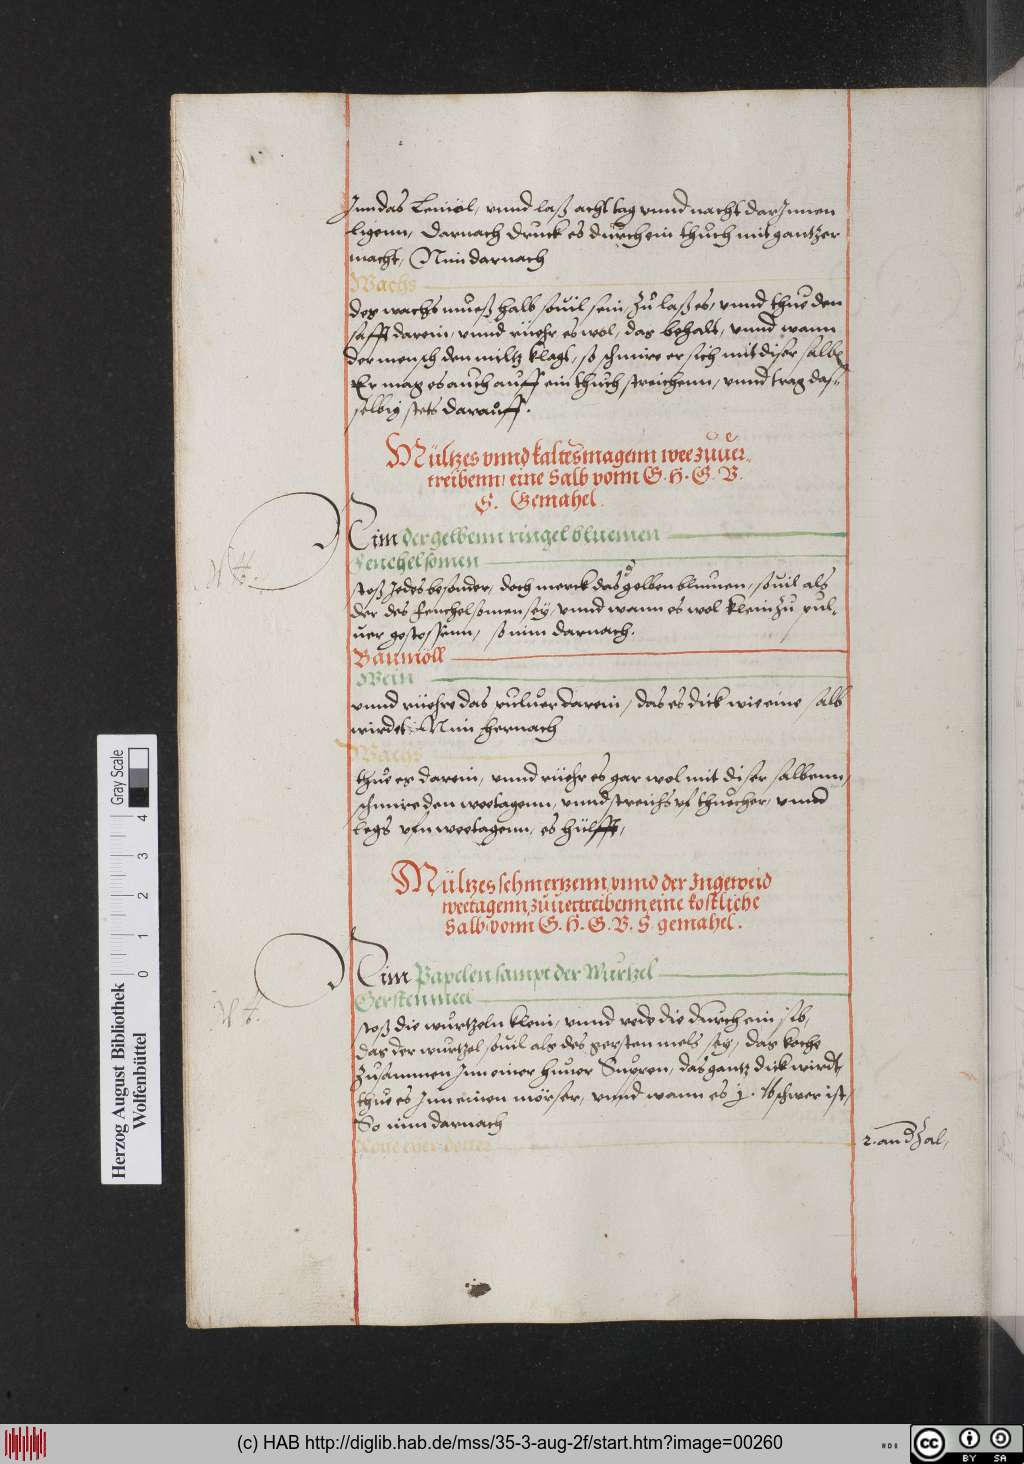 Inn das Leinöl, vnnd laß acht tag vnnd nacht darinnen
ligenn, Darnach druck es durch ein thuch mit gantzer
macht, Nim darnach
Wachs
des wachs mueß halb souil sein, zu laß es, vnnd thue den
safft darein, vnnd rüehr es wol, das behalt, vnnd wann
der mensch den miltz klagt, so schmire er sich mit diser salb
Er mag es auch auff ein thuch streichenn, vnnd trag das-
selbig stets darauff.
Miltzes vnnd kaltes magenn wee zuuer-
treibenn, eine Salb vonn G. H. G. V.
S. Gemahel.
Nim der gelbenn ringel bluemen
Fenchelsomen
stoß Jedes besonder, doch merck das gelben blumen, souil als
der des fenchelsomen sey, vnnd wann es wol klein zu pul-
uer gestossenn, so nim darnach.
Baumöll
Wein
vnnd rüehre das puluer darein, das es dick wie eine salb
wirdet, Nim hernach
Wachs
thue es darein, vnnd rüehr es gar wol mit diser salbenn,
schmire den weetagenn, vnnd streichs vf thüecher, vnnd
legs vfn weetagenn, es hülfft,
Miltzes schmertzenn, vnnd der Ingeweid
weetagenn, zuuertreibenn, eine kostliche
Salb, vonn G. H. G. V. S. gemahel.
Nim Papelen sampt der Wurtzel
Gerstenmeel
stoß die wurtzeln klein, vnnd rede die durch ein sib,
das der wurtzel souil als des gersten mels sey, das koche
zusammen Inn einer hüner Suppen, das gantz dick wirdt,
thue es Inn einen mörser, vnnd wann es j. ℔ schwer ist,
So nim darnach
Rote eyer dotter
2. and Zal,
Herzog August Bibliothek
Wolfenbüttel
0 1 2 3 4
Gray Scale
(c) HAB http://diglib.hab.de/mss/35-3-aug-2f/start.htm?image=00260
cc BY SA